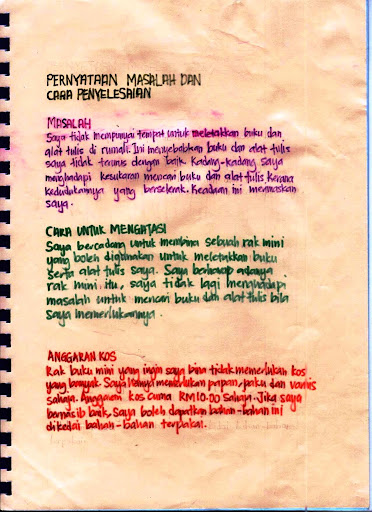 PERNYATAAN MASALAH DAN
CARA PENYELESAIAN
MASALAH
Saya tidak mempunyai tempat untuk meletakkan buku dan
alat tulis di rumah. Ini menyebabkan buku dan alat tulis
saya tidak terurus dengan baik. Kadang-kadang saya
menghadapi kesukaran mencari buku dan alat tulis kerana
kedudukannya yang berselerak. Keadaan ini merimaskan
saya.
CARA UNTUK MENGATASI
Saya bercadang untuk membina sebuah rak mini
yang boleh digunakan untuk meletakkan buku
serta alat tulis saya. Saya berharap adanya
rak mini itu, saya tidak lagi menghadapi
masalah untuk mencari buku dan alat tulis bila
saya memerlukannya.
ANGGARAN KOS
Rak buku mini yang ingin saya bina tidak memerlukan kos
yang banyak. Saya hanya memerlukan papan, paku dan varnis
sahaja. Anggaran kos cuma RM10.00 sahaja. Jika saya
bernasib baik, saya boleh dapatkan bahan-bahan ini
dikedai bahan-bahan terpakai.